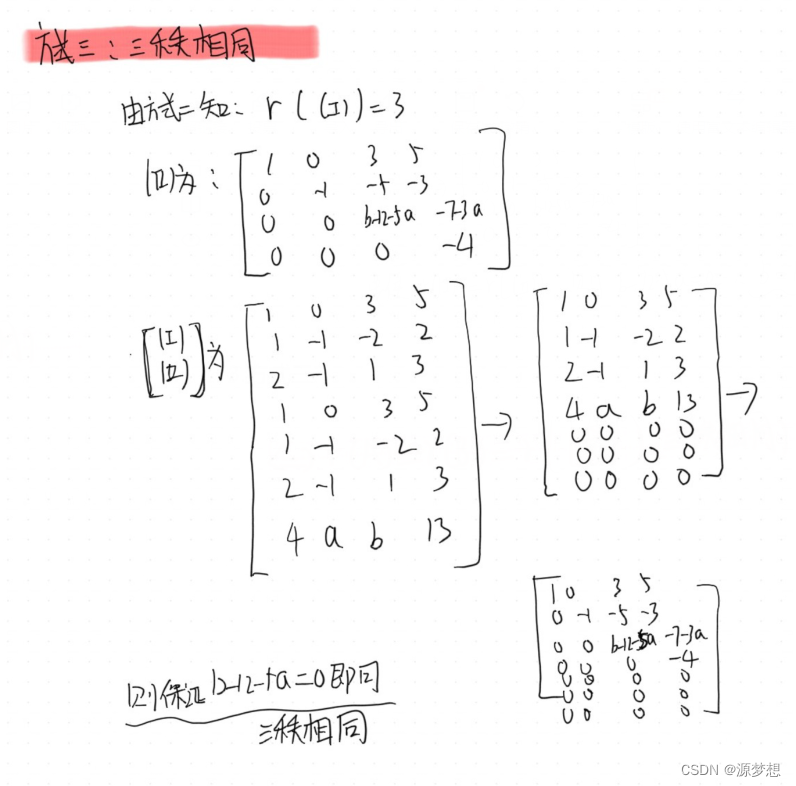 方式三：三秩相同
由方式二知： r ( (I) ) = 3
(II)为：
1 0 3 5
0 -1 -5 -3
0 0 b-12-5a -7-3a
0 0 0 -4
[(I) (II)]为
1 0 3 5
1 -1 -2 2
2 -1 1 3
1 0 3 5
1 -1 -2 2
2 -1 1 3
4 a b 13
→
1 0 3 5
1 -1 -2 2
2 -1 1 3
4 a b 13
0 0 0 0
0 0 0 0
0 0 0 0
→
1 0 3 5
0 -1 -5 -3
0 0 b-12-5a -7-3a
0 0 0 -4
0 0 0 0
0 0 0 0
0 0 0 0
则保证 b-12-5a=0即可
三秩相同
CSDN @源梦想